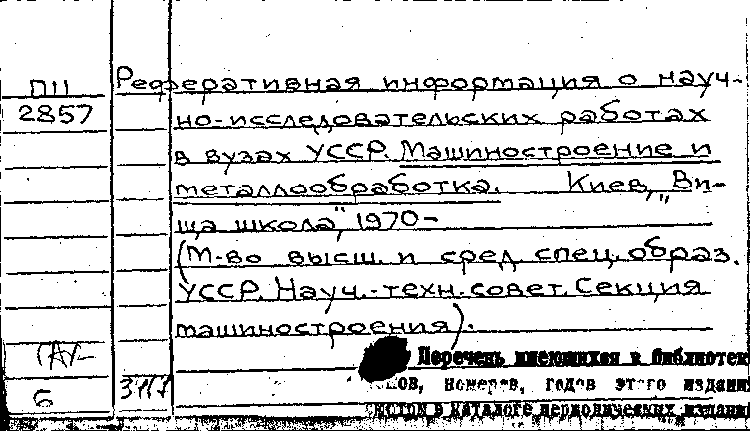 ПII
2857
Реферативная информация о науч-
но-исследовательских работах
в вузах УССР. Машиностроение и
металлообработка. Киев, „Ви-
ща школа", 1970-
(М-во высш. и сред. спец. образ.
УССР. Науч.-техн. совет. Секция
машиностроения).
Перечень имеющихся в библиотек
номеров, годов этого издани
в каталоге периодических издани
6